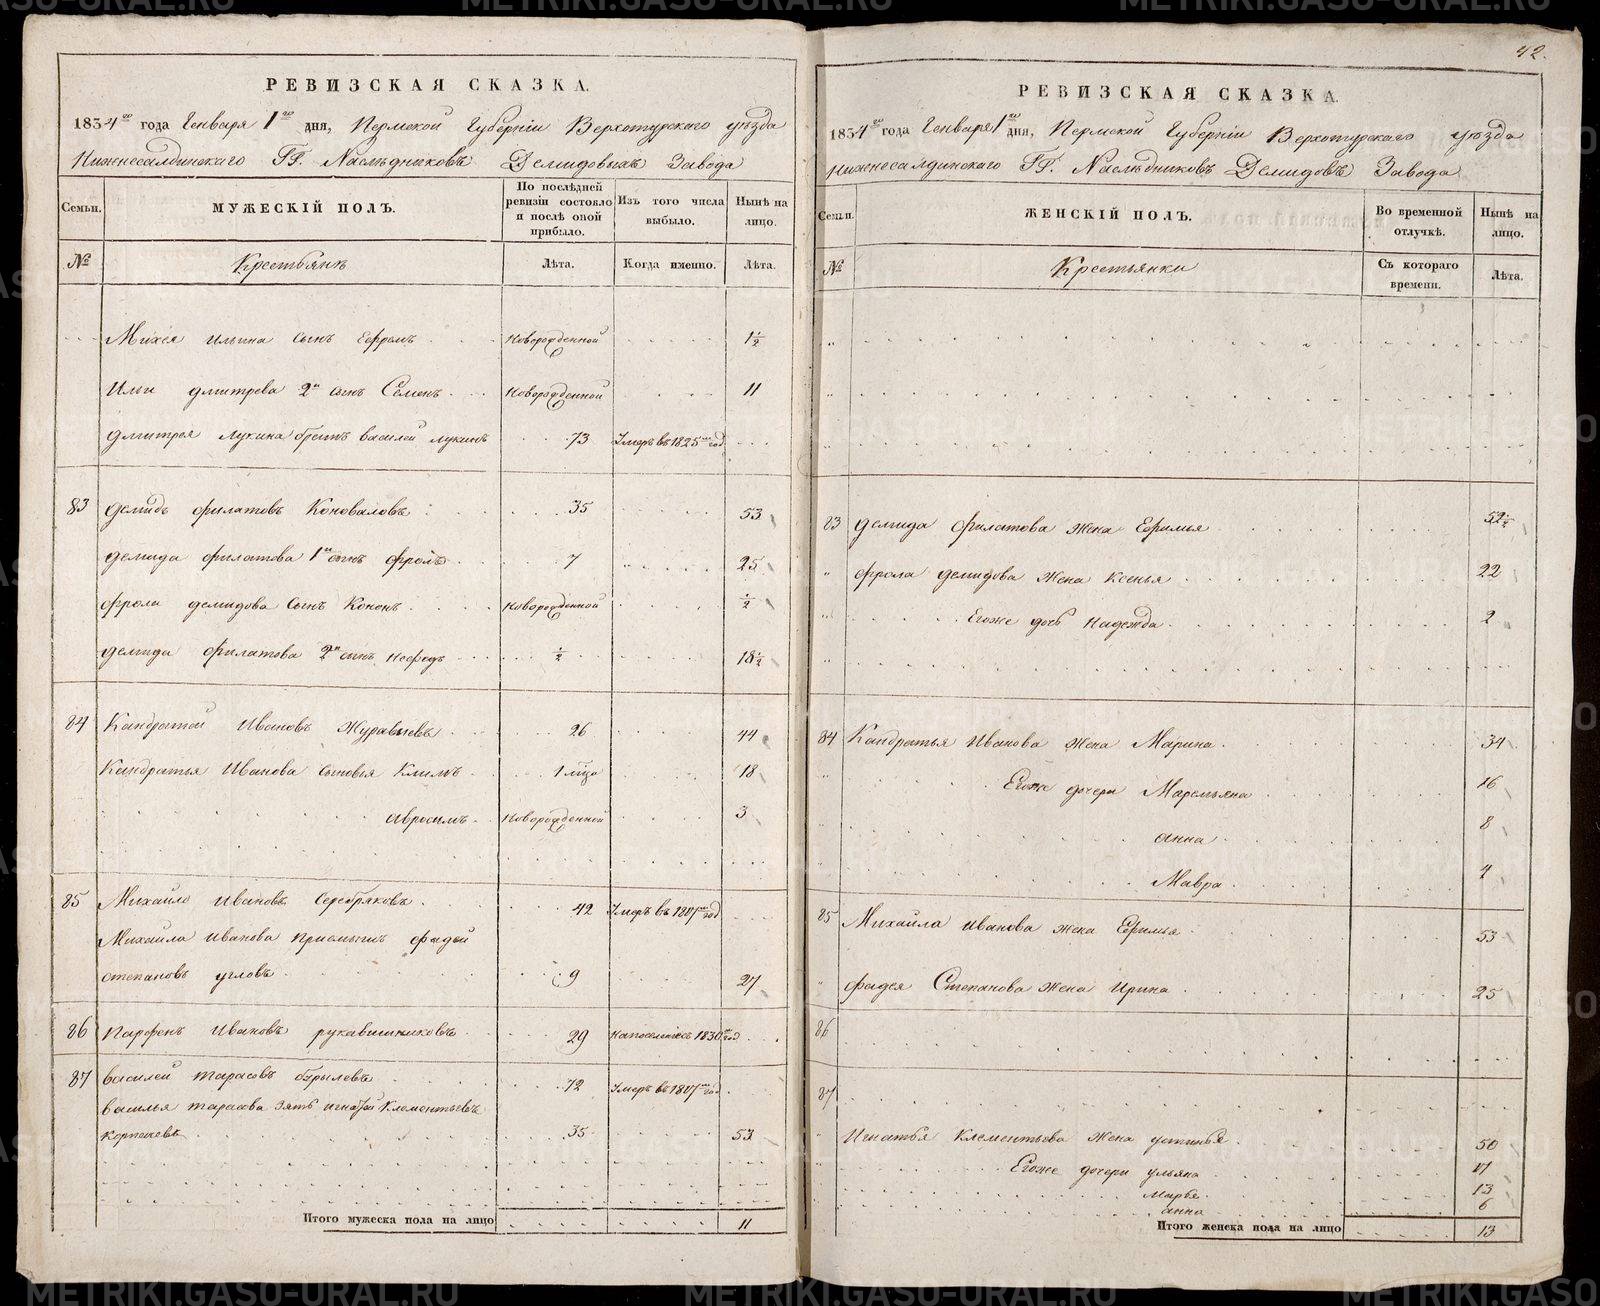 42.
РЕВИЗСКАЯ СКАЗКА.
1834го года Генваря 1го дня, Пермской Губерніи Верхотурскаго уѣзда
Нижнесалдинскаго ГГ. Наслѣдниковъ Демидовыхъ Завода
Семьи.
МУЖЕСКІЙ ПОЛЪ.
По послѣдней ревизіи состояло и послѣ оной прибыло.
Изъ того числа выбыло.
Нынѣ на лицо.
№
Крестьянъ
Лѣта.
Когда именно.
Лѣта.
Михея Ильина сынъ Ефремъ новорожденной 1½
Ильи дмитрева 2й сынъ Семенъ новорожденной 11
дмитрея лукина братъ василей лукинъ 73 Умеръ въ 1825мъ год
83 демидъ филатовъ Коноваловъ 35 53
демида филатова 1й сынъ фролъ 7 25
фрола демидова сынъ Кононъ новорожденной ½
демида филатова 2й сынъ нефодъ ½ 18½
84 Кандратей Ивановъ Журавлевъ 26 44
Кандратья Иванова сыновья Климъ 1 18
авросимъ новорожденной 3
85 Михайло Ивановъ Серебряковъ 42 Умеръ въ 1817мъ год
Михайла Иванова приемышъ фадей
степановъ угловъ 9 27
86 Парфенъ Ивановъ рукавишниковъ 29 на поселение въ 1830м год
87 василей тарасовъ бурылевъ 72 Умеръ въ 1817мъ год
василья тарасова зять игнатей Клементьевъ
35 53
Итого мужеска пола на лицо 11
РЕВИЗСКАЯ СКАЗКА.
1834го года Генваря 1го дня, Пермской Губерніи Верхотурскаго уѣзда
Нижнесалдинскаго ГГ. Наслѣдниковъ Демидовъ Завода
Семьи.
ЖЕНСКІЙ ПОЛЪ.
Во временной отлучкѣ.
Нынѣ на лицо.
№
Крестьянки
Съ котораго времени.
Лѣта.
83 демида филатова жена Ефимья 52½
фрола демидова жена Ксенья 22
Егоже дочь Надежда 2
84 Кандратья Иванова жена Марина 34
Егоже дочери Маремьяна 16
анна 8
Мавра 4
85 Михайла Иванова жена Ефимья 53
фадея Степанова жена Ирина 25
86
87
Игнатья Клементьева жена устинья 50
Егоже дочери ульяна 17
марья 13
анна 6
Итого женска пола на лицо 13
METRIKI.GASO-URAL.RU